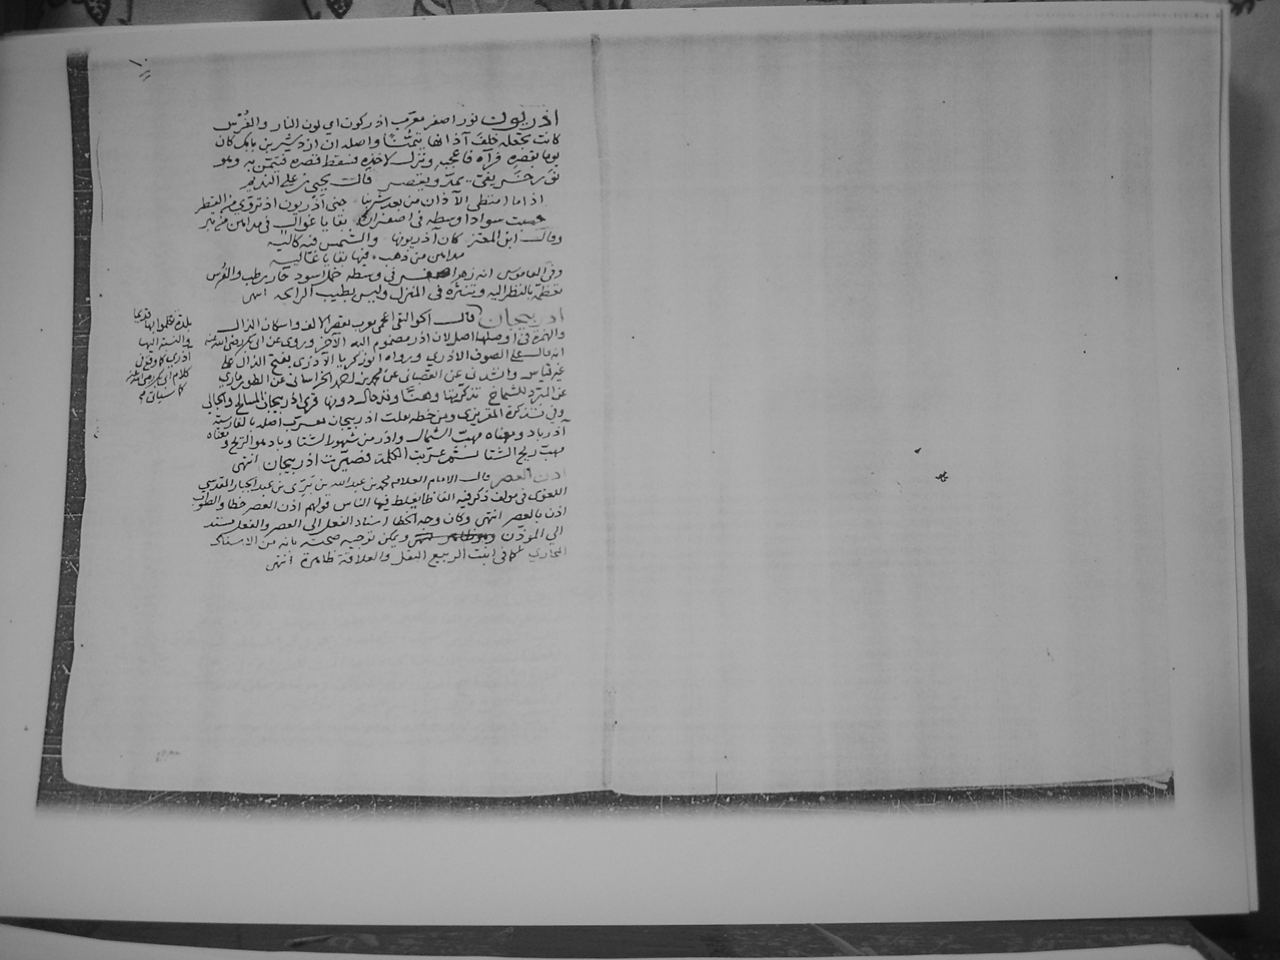 ١٠
اذريون نور اصفر معرب اذركون اي لون النار والفرس
كانت تجعله خلف آذانها تيمنا واصله ان اردشير بن بابك كان
يوما بقصره فرآه فاعجبه ونزل لاخذه فسقط قصره فتيمن به وهو
نور خريفي يمد ويقصر قال يحيى بن علي النديم
اذا ما امتطى الآذان من بعد شربنا جنى آذريون
حسبت سوادا وسطه في اصفراره بقايا غوالي في مداهن من تبر
وقال ابن المعتز كان آذريونها والشمس فيه كاليه
مداهن من ذهب فيها بقايا غاليه
وفي القاموس انه زهر اصفر في وسطه خمل اسود حار رطب والفرس
تعظمه بالنظر اليه وتنثره في المنزل وليس بطيب الرائحة انتهى
اذربيجان قال ابو التقى اعجمي معرب بقصر الالف واسكان الذال
والهمزة في اوصلها اصل لان اذر مضموم اليه الآخر وروي عن ابي بكر رضي الله عنه
انه قال على الصوف الاذري ورواه ابو زكريا الآذري بفتح الذال على
غير قياس وانشدني عن القصباني عن محمد بن احمد الخراساني عن الطوماري
عن المبرد للشماخ تذكرتها وهنا وقد حال دونها قرى اذربيجان المسالح والجالي
وفي تذكرة المقريزي ومن خطه نقلت اذربيجان معرب اصله بالفارسية
آذرباد ومعناه مهب الشمال واذر من شهور الشتا وباد هو الريح ومعناه
مهب ريح الشتا ثم عربت الكلمة فصيرت اذربيجان انتهى
اذن العصر قال الامام العلامة محمد بن عبد الله بن بري بن عبد الجبار المقدسي
اللغوي في مولف ذكر فيه الفاظا يغلط فيها الناس قولهم اذن العصر خطا والصواب
اذن بالعصر انتهى وكان وجه الخطا اسناد الفعل الى العصر والفعل مسند
الى الموذن ويمكن توجيه صحته بانه من الاسناد
المجازي كما في انبت الربيع البقل والعلاقة ظاهرة انتهى
بلدة تكلموا بها قديما
والنسبة اليها
اذري كما وقع في
كلام ابي بكر رضي الله عنه
كما سيات